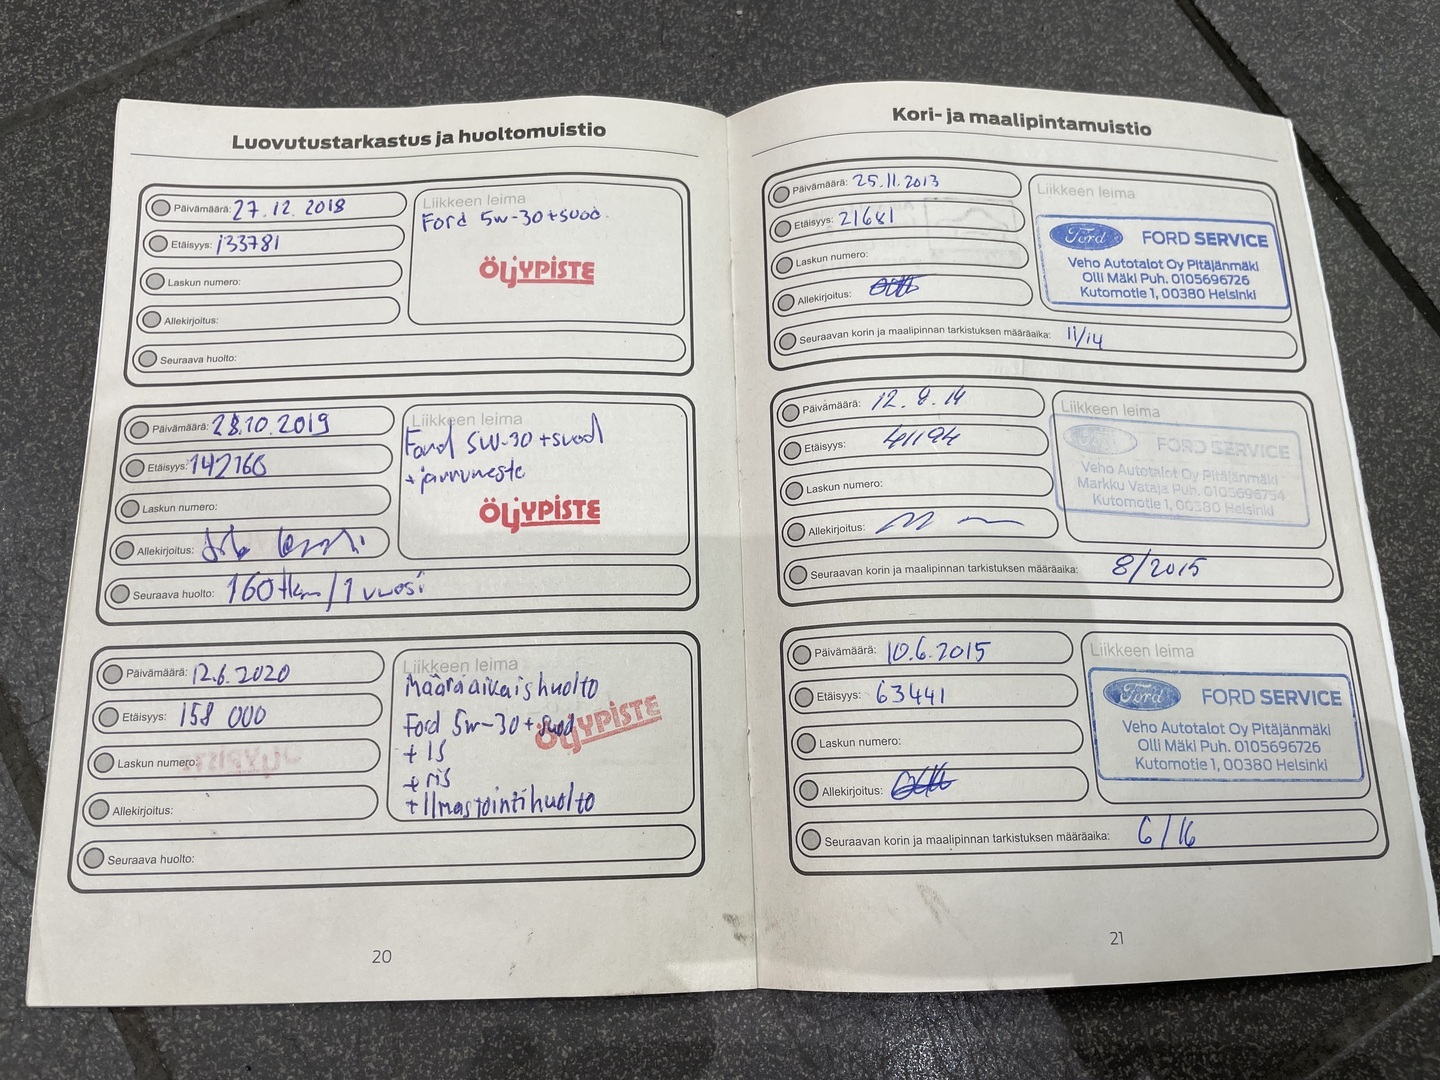 Luovutustarkastus ja huoltomuistio
Päivämäärä: 27.12.2018
Etäisyys: 133781
Laskun numero:
Allekirjoitus:
Seuraava huolto:
Liikkeen leima
Ford 5w-30+suod.
ÖLJYPISTE
Päivämäärä: 28.10.2019
Etäisyys: 142766
Laskun numero:
Allekirjoitus:
Seuraava huolto: 160tkm/1 vuosi
Liikkeen leima
Ford 5W-30+suod
+jarruneste
ÖLJYPISTE
Päivämäärä: 12.6.2020
Etäisyys: 158 000
Laskun numero:
Allekirjoitus:
Seuraava huolto:
Liikkeen leima
Määräaikaishuolto
Ford 5w-30+suod
ÖLJYPISTE
+ IS
+ RIS
+Ilmastointihuolto
20
Kori- ja maalipintamuistio
Päivämäärä: 25.11.2013
Etäisyys: 21681
Laskun numero:
Allekirjoitus:
Seuraavan korin ja maalipinnan tarkistuksen määräaika: 11/14
Liikkeen leima
Ford FORD SERVICE
Veho Autotalot Oy Pitäjänmäki
Olli Mäki Puh. 0105696726
Kutomotie 1, 00380 Helsinki
Päivämäärä: 12.8.14
Etäisyys: 41194
Laskun numero:
Allekirjoitus:
Seuraavan korin ja maalipinnan tarkistuksen määräaika: 8/2015
Liikkeen leima
Ford FORD SERVICE
Veho Autotalot Oy Pitäjänmäki
Markku Vataja Puh. 0105696754
Kutomotie 1, 00380 Helsinki
Päivämäärä: 10.6.2015
Etäisyys: 63441
Laskun numero:
Allekirjoitus:
Seuraavan korin ja maalipinnan tarkistuksen määräaika: 6/16
Liikkeen leima
Ford FORD SERVICE
Veho Autotalot Oy Pitäjänmäki
Olli Mäki Puh. 0105696726
Kutomotie 1, 00380 Helsinki
21